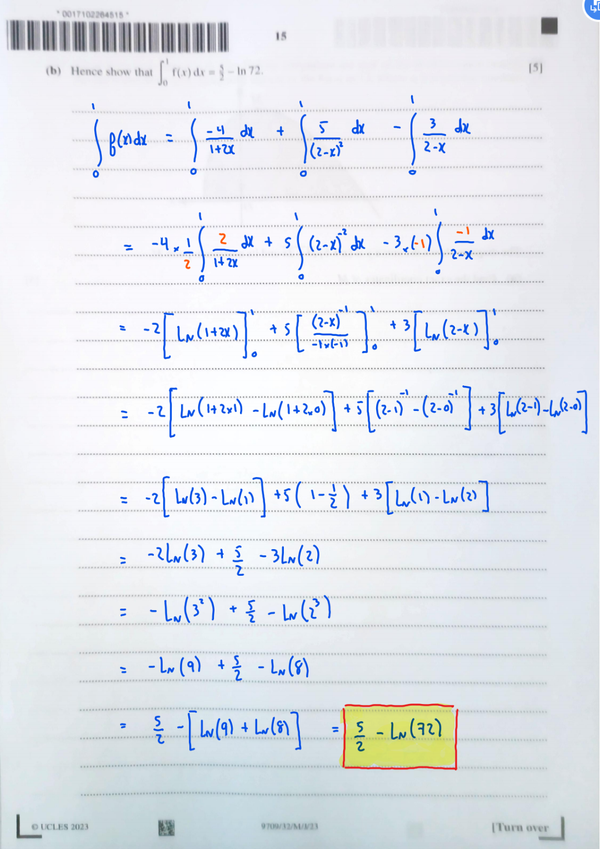 * 0017102264515 *
15
(b) Hence show that ∫₀¹ f(x) dx = 5/2 − ln 72. [5]
∫₀¹ f(x) dx = ∫₀¹ -4/(1+2x) dx + ∫₀¹ 5/(2-x)² dx - ∫₀¹ 3/(2-x) dx
= -4 × 1/2 ∫₀¹ 2/(1+2x) dx + 5 ∫₀¹ (2-x)⁻² dx - 3×(-1) ∫₀¹ -1/(2-x) dx
= -2[LN(1+2x)]₀¹ + 5[(2-x)⁻¹/(-1×(-1))]₀¹ + 3[LN(2-x)]₀¹
= -2[LN(1+2×1) - LN(1+2×0)] + 5[(2-1)⁻¹ - (2-0)⁻¹] + 3[LN(2-1) - LN(2-0)]
= -2[LN(3) - LN(1)] + 5(1 - 1/2) + 3[LN(1) - LN(2)]
= -2LN(3) + 5/2 - 3LN(2)
= -LN(3²) + 5/2 - LN(2³)
= -LN(9) + 5/2 - LN(8)
= 5/2 - [LN(9) + LN(8)] = 5/2 - LN(72)
© UCLES 2023
9709/32/M/J/23
[Turn over